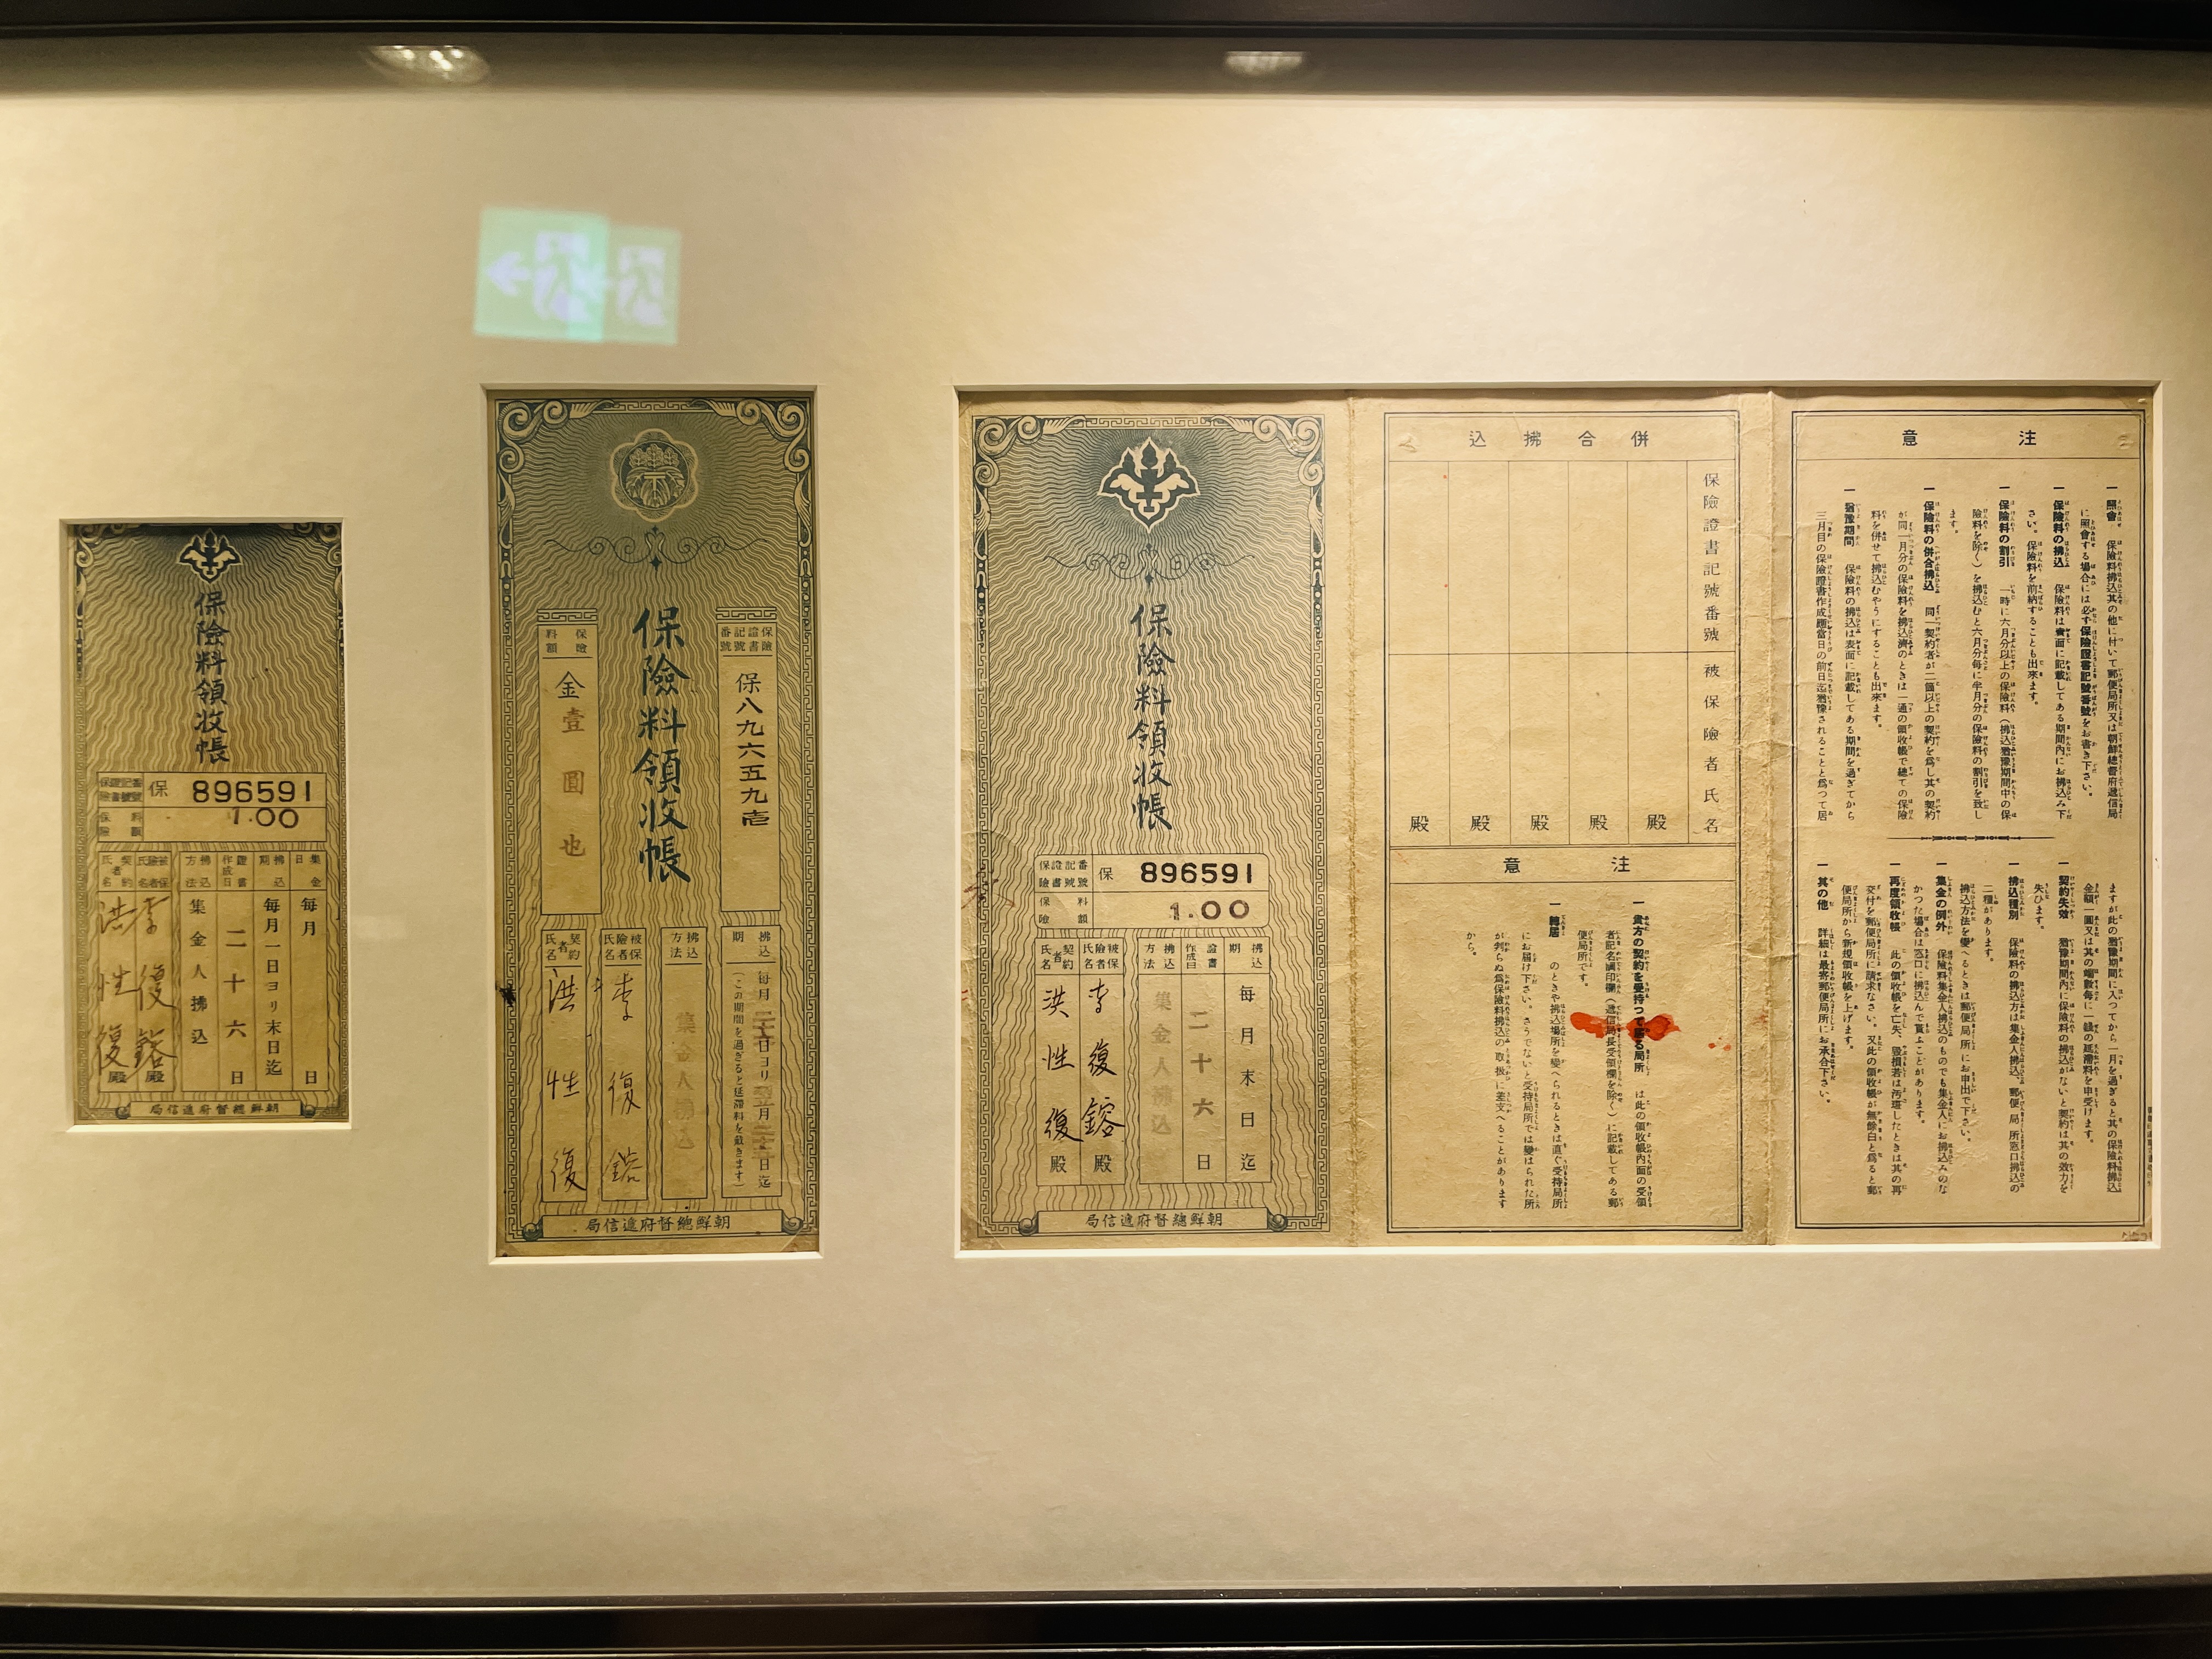 保險料領收帳
保險證書記號番號
保 896591
保險料額
1.00
集金日
每月
日
拂込期
每月一日ヨリ末日迄
證書作成日
二十六日
拂込方法
集金人拂込
被保險者氏名
李復鎔殿
契約者氏名
洪性復殿
朝鮮總督府遞信局
保險證書記號番號
保八九六五九壱
保險料領收帳
保險料額
金壹圓也
拂込期
(この期間を過ぎると延滯料を戴きます)
拂込方法
集金人拂込
被保險者氏名
李復鎔
契約者氏名
洪性復
朝鮮總督府遞信局
保險料領收帳
保險證書記號番號
保 896591
保險料額
1.00
拂込期
每月末日迄
證書作成日
二十六日
拂込方法
集金人拂込
被保險者氏名
李復鎔殿
契約者氏名
洪性復殿
朝鮮總督府遞信局
併合拂込
保險證書記號番號
被保險者氏名
殿
殿
殿
殿
殿
注意
一 貴方の契約を受持つて居る局所 は此の領收帳內面の受領
者記名調印欄(遞信局長受領欄を除く)に記載してある郵
便局所です。
一 轉居 のときや拂込場所を變へられるときは直ぐ受持局所
にお屆け下さい。さうでないと受持局所では變はられた所
が判らぬ爲保險料拂込の取扱に差支へることがあります
から。
注意
一 照會 保險料拂込其の他に付いて郵便局所又は朝鮮總督府遞信局
に照會する場合には必ず保險證書記號番號をお書き下さい。
一 保險料の拂込 保險料は表面に記載してある期間內にお拂込み下
さい。保險料を前納することも出來ます。
一 保險料の割引 一時に六月分以上の保險料(拂込猶豫期間中の保
險料を除く)を拂込むと六月分每に半月分の保險料の割引を致し
ます。
一 保險料の併合拂込 同一契約者が二箇以上の契約を爲し其の契約
が同一月分の保險料を拂込濟のときは一通の領收帳で總ての保險
料を併せて拂込むやうにすることも出來ます。
一 猶豫期間 保險料の拂込は表面に記載してある期間を過ぎてから
三月目の保險證書作成應當日の前日迄猶豫されることと爲つて居
ますが此の猶豫期間に入つてから一月を過ぎると其の保險料拂込
金額一圓又は其の端數每に一錢の延滯料を申受けます。
一 契約失效 猶豫期間內に保險料の拂込がないと契約は其の效力を
失ひます。
一 拂込種別 保險料の拂込方は集金人拂込、郵便局所窓口拂込の
二種があります。
拂込方法を變へるときは郵便局所にお申出で下さい。
一 集金の例外 保險料集金人拂込のものでも集金人にお拂込みのな
かつた場合は窓口に拂込んで貰ふことがあります。
一 再度領收帳 此の領收帳を亡失、毀損若は汚染したときは其の再
交付を郵便局所に請求なさい。又此の領收帳が無餘白と爲ると郵
便局所から新規領收帳を上げます。
一 其の他 詳細は最寄郵便局所にお承合下さい。